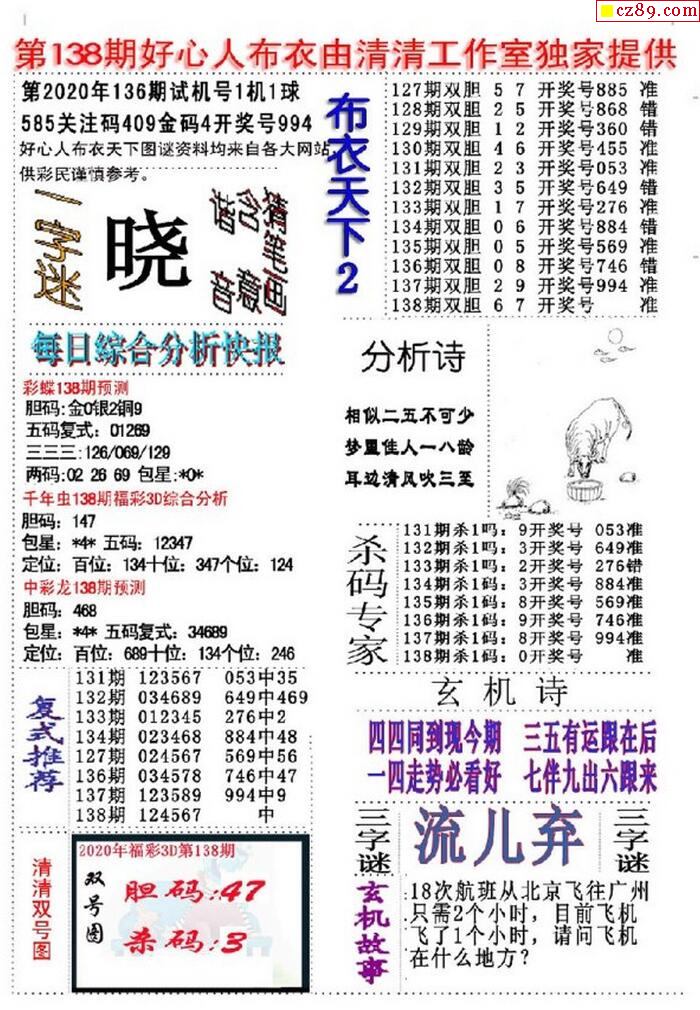 cz89.com
第138期好心人布衣由清清工作室独家提供
第2020年136期试机号1机1球
585关注码409金码4开奖号994
好心人布衣天下图谜资料均来自各大网站
供彩民谨慎参考。
一字迷
晓
谐音
含意
猜笔画
布衣天下2
127期双胆 5 7 开奖号885 准
128期双胆 2 5 开奖号868 错
129期双胆 1 2 开奖号360 错
130期双胆 4 6 开奖号455 准
131期双胆 2 3 开奖号053 准
132期双胆 3 5 开奖号649 错
133期双胆 1 7 开奖号276 准
134期双胆 0 6 开奖号884 错
135期双胆 0 5 开奖号569 准
136期双胆 0 8 开奖号746 错
137期双胆 2 9 开奖号994 准
138期双胆 6 7 开奖号 准
每日綜合分析快报
彩蝶138期预测
胆码:金0银2铜9
五码复式：01269
三三三:126/069/129
两码:02 26 69 包星:*0*
千年虫138期福彩3D综合分析
胆码：147
包星：*4* 五码：12347
定位：百位：134十位：347个位：124
中彩龙138期预测
胆码：468
包星：*4* 五码复式：34689
定位：百位：689十位：134个位：246
分析诗
相似二五不可少
梦里佳人一八龄
耳边清风吹三至
杀码专家
131期杀1吗：9开奖号 053准
132期杀1吗：3开奖号 649准
133期杀1吗：2开奖号 276错
134期杀1码：3开奖号 884准
135期杀1码：8开奖号 569准
136期杀1码：9开奖号 746准
137期杀1码：8开奖号 994准
138期杀1码：0开奖号 准
复式推荐
131期 123567 053中35
132期 034689 649中469
133期 012345 276中2
134期 023468 884中48
127期 024567 569中56
136期 034578 746中47
137期 123589 994中9
138期 124567 中
玄机诗
四四同到现今期 三五有运跟在后
一四走势必看好 七伴九出六跟来
三字谜
流儿弃
三字谜
清清双号图
2020年福彩3D第138期
双号图
胆码:47
杀码:3
玄机故事
18次航班从北京飞往广州
只需2个小时，目前飞机
飞了1个小时，请问飞机
在什么地方？